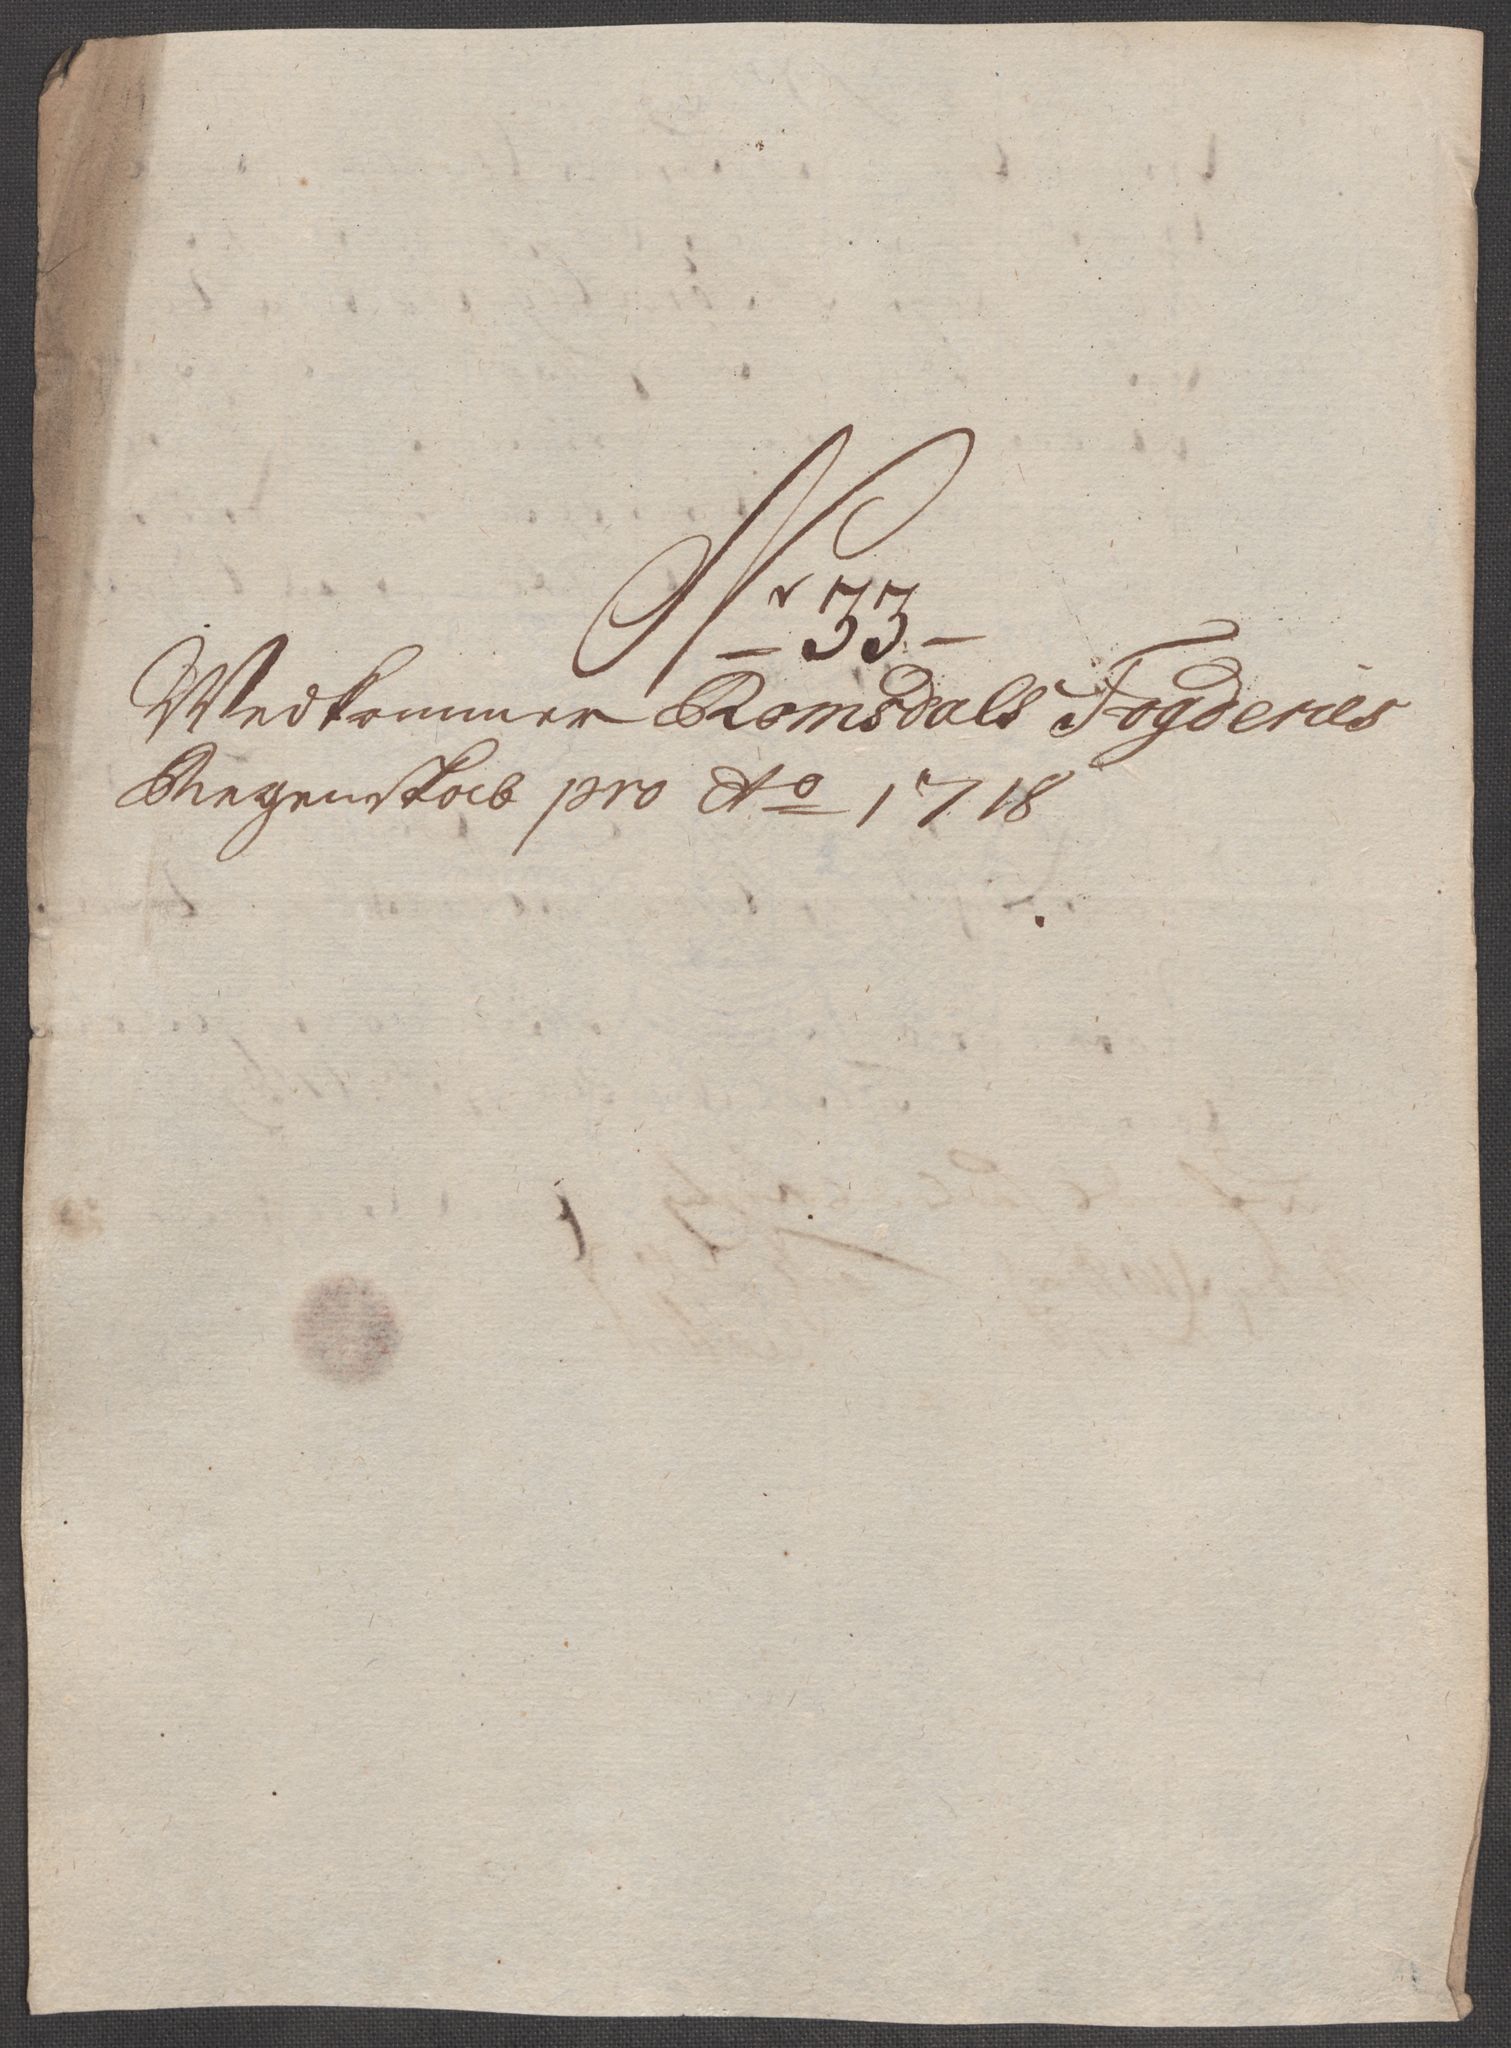 Nr 33
Wedkommer Romsdals Fogderies
Regenskab pro Ao 1718